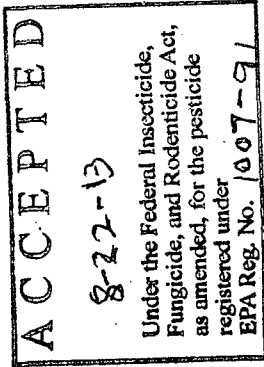 ACCEPTED
8-22-13
Under the Federal Insecticide,
Fungicide, and Rodenticide Act,
as amended, for the pesticide
registered under
EPA Reg. No. 1007-91